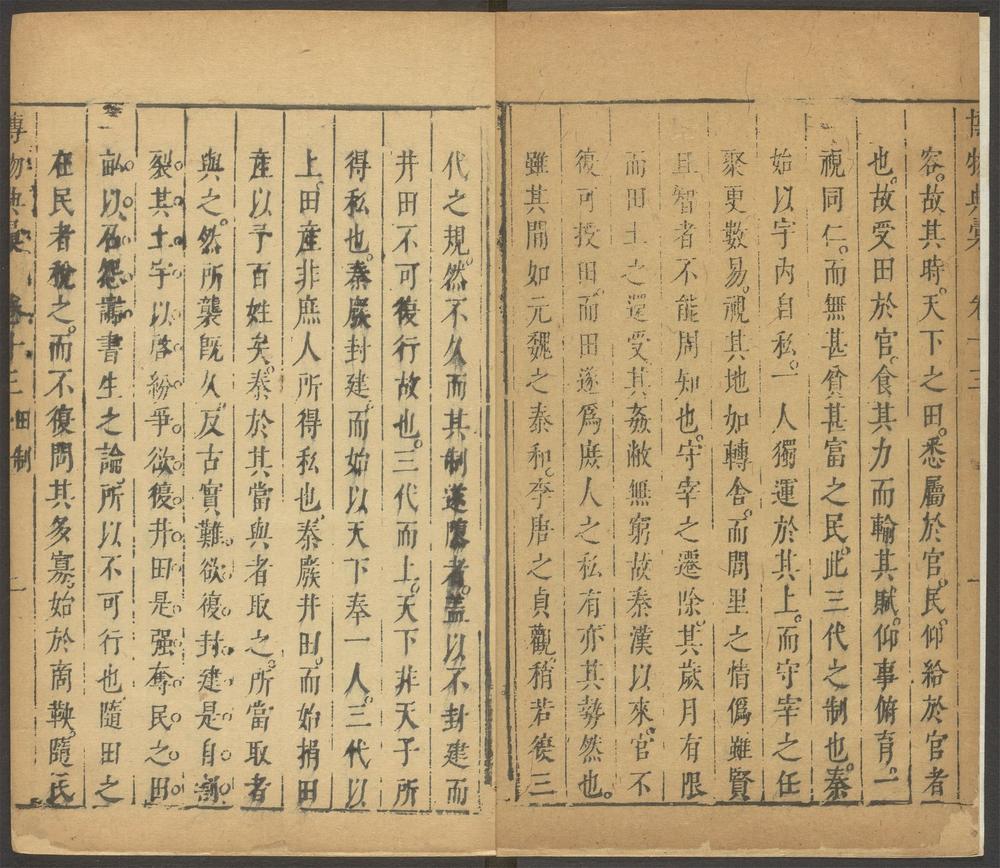 博物典彙 卷十三 一
容。故其時。天下之田。悉屬於官。民仰給於官者
也。故受田於官。食其力而輸其賦。仰事俯育。一
視同仁。而無甚貧甚富之民。此三代之制也。秦
始以宇內自私。一人獨運於其上。而守宰之任
聚更數易。視其地如轉舍。而閭里之情僞雖賢
且智者不能周知也。守宰之遷除。其歲月有限
而田土之還受其姦敝無窮故秦漢以來。官不
復可授田。而田遂爲庶人之私有亦其勢然也。
雖其間如元魏之泰和。李唐之貞觀。稍若復三
代之規。然不久而其制遂隳者。蓋以不封建而
井田不可復行故也。三代而上。天下非天子所
得私也。秦廢封建。而始以天下奉一人。三代以
上。田産非庶人所得私也。秦廢井田。而始捐田
産以予百姓矣。秦於其當與者取之。所當取者
與之。然所襲旣久。反古實難。欲復封建。是自割
裂其土宇以啓紛爭。欲復井田。是强奪民之田
畝以召怨讟。書生之論。所以不可行也隨田之
在民者稅之。而不復問其多寡。始於商鞅。隨民
博物典彙 卷十三 田制 一